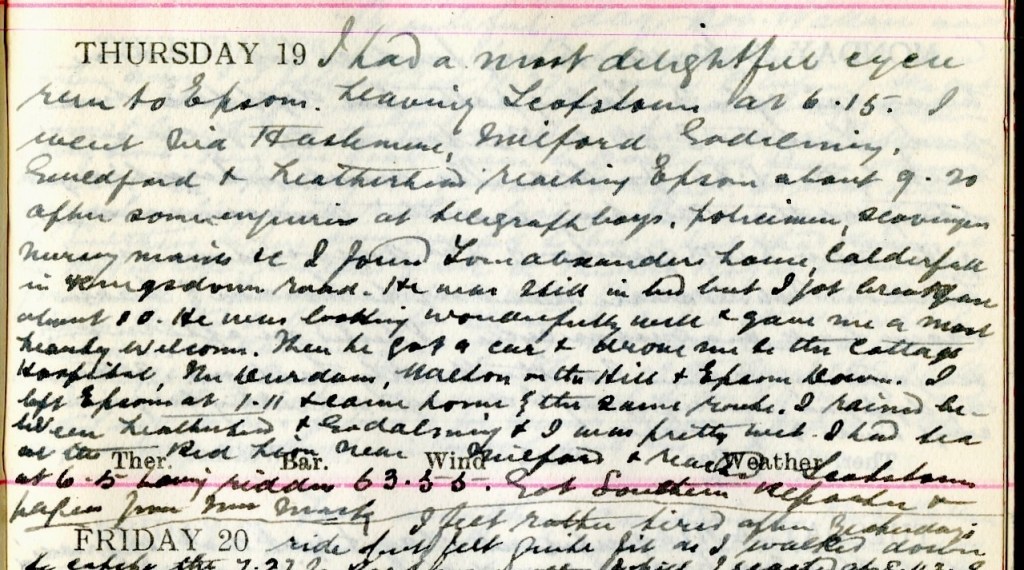 THURSDAY 19 I had a most delightful cycle
run to Epsom. Leaving at 6.15. I
went via Haslemere, Milford Godalming
Guildford & Leatherhead reaching Epsom about 9.20
after some enquiries at telegraph boys, policemen, scavengers
nursery maids &c I found Tom Alexanders house, Calderfell
in Kingsdown road. He was still in bed but I got breakfast
about 10. He was looking wonderfully well & gave me a most
hearty welcome. Then he got a car & drove me to the Cottage
Hospital, The Durdans, Walton on the Hill & Epsom Downs. I
left Epsom at 1.11 & came home by the same route. I rained be-
tween Leatherhead & Godalming & I was pretty wet. I had tea
at the Red Lion near Milford & reached
Ther. Bar. Wind Weather
at 6.5 having ridden 63.55. Got Southern Reporter &
papers from
FRIDAY 20 I felt rather tired after yesterdays
ride but felt quite fit as I walked down
to catch the 7.27